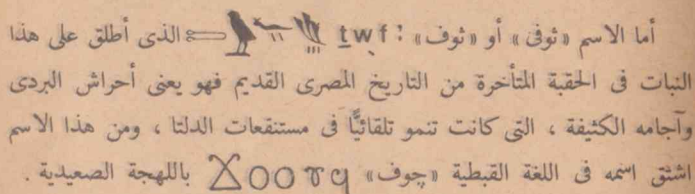 أما الاسم «ثوفى» أو «ثوف» : ṯwf الذى أطلق على هذا
النبات فى الحقبة المتأخرة من التاريخ المصرى القديم فهو يعنى أحراش البردى
وآجامه الكثيفة ، التى كانت تنمو تلقائيًّا فى مستنقعات الدلتا ، ومن هذا الاسم
اشتق اسمه فى اللغة القبطية «چوف» ϪΟΟⲨϤ باللهجة الصعيدية .